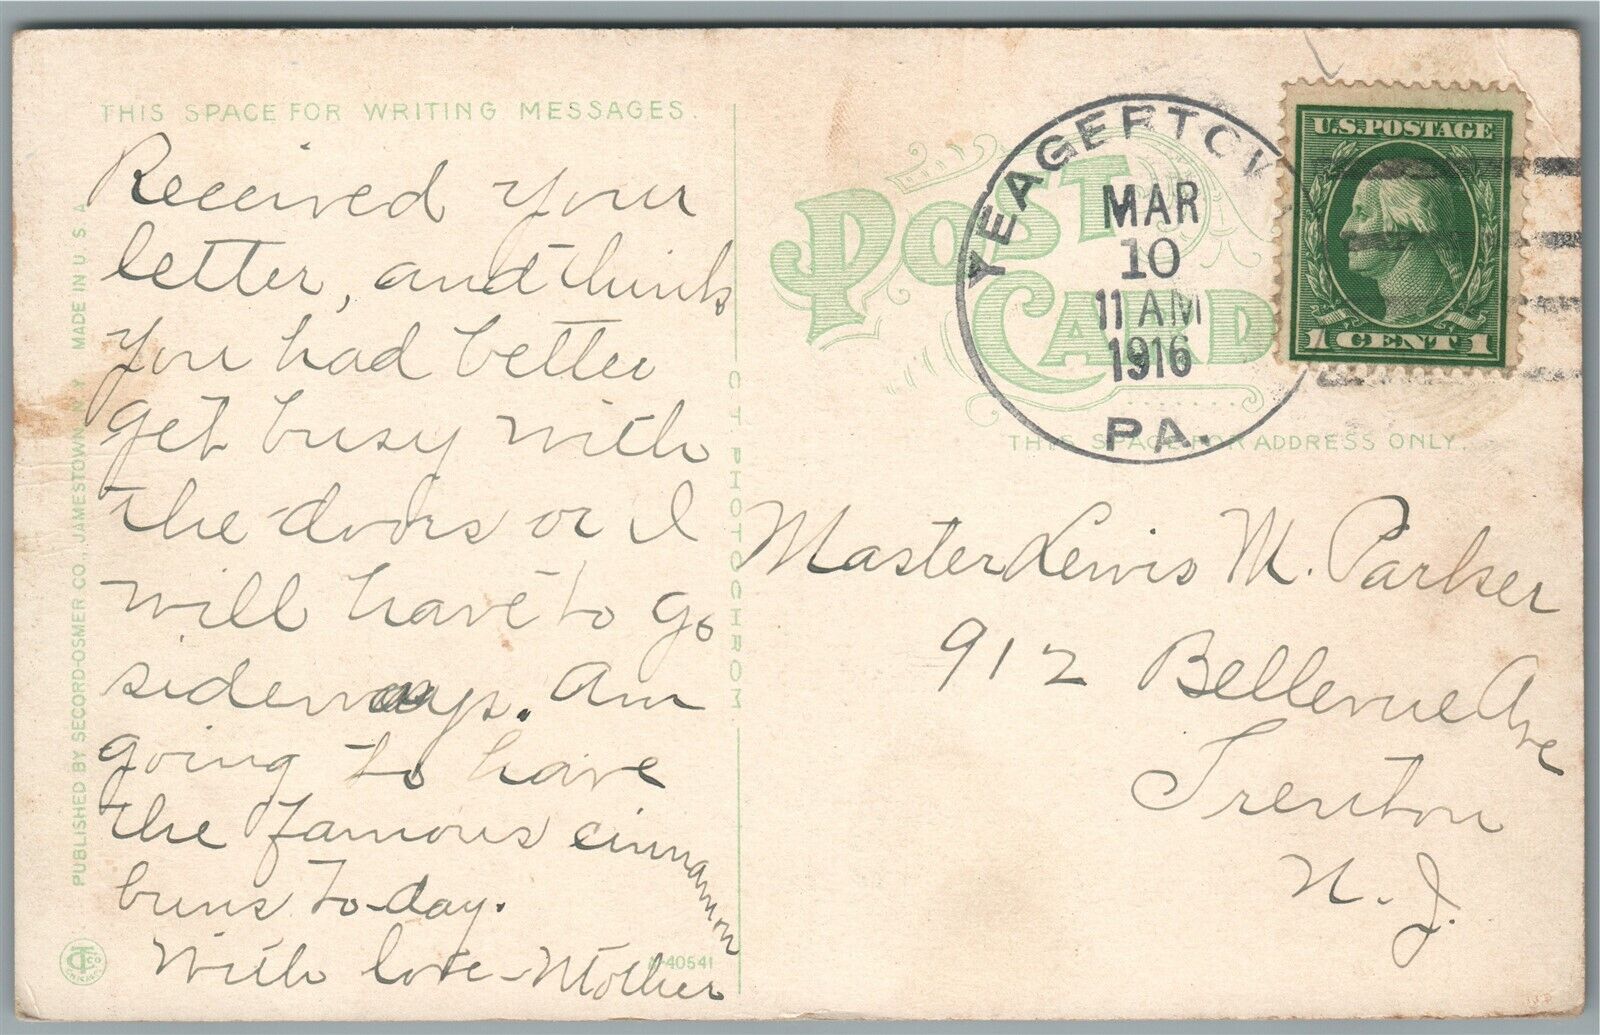 THIS SPACE FOR WRITING MESSAGES.
Received your
letter, and think
you had better
get busy with
the doors or I
will have to go
sideways. Am
going to have
the famous cinnamon
buns to-day.
With love - Mother
PUBLISHED BY SECORD-OSMER CO., JAMESTOWN, N.Y. MADE IN U.S.A.
C T PHOTOCHROM
A-40541
POST CARD
THIS SPACE FOR ADDRESS ONLY.
YEAGERTOW
MAR
10
11 AM
1916
PA.
U.S. POSTAGE
1 CENT 1
Master Lewis M. Parker
912 Bellevue Ave
Trenton
N. J.